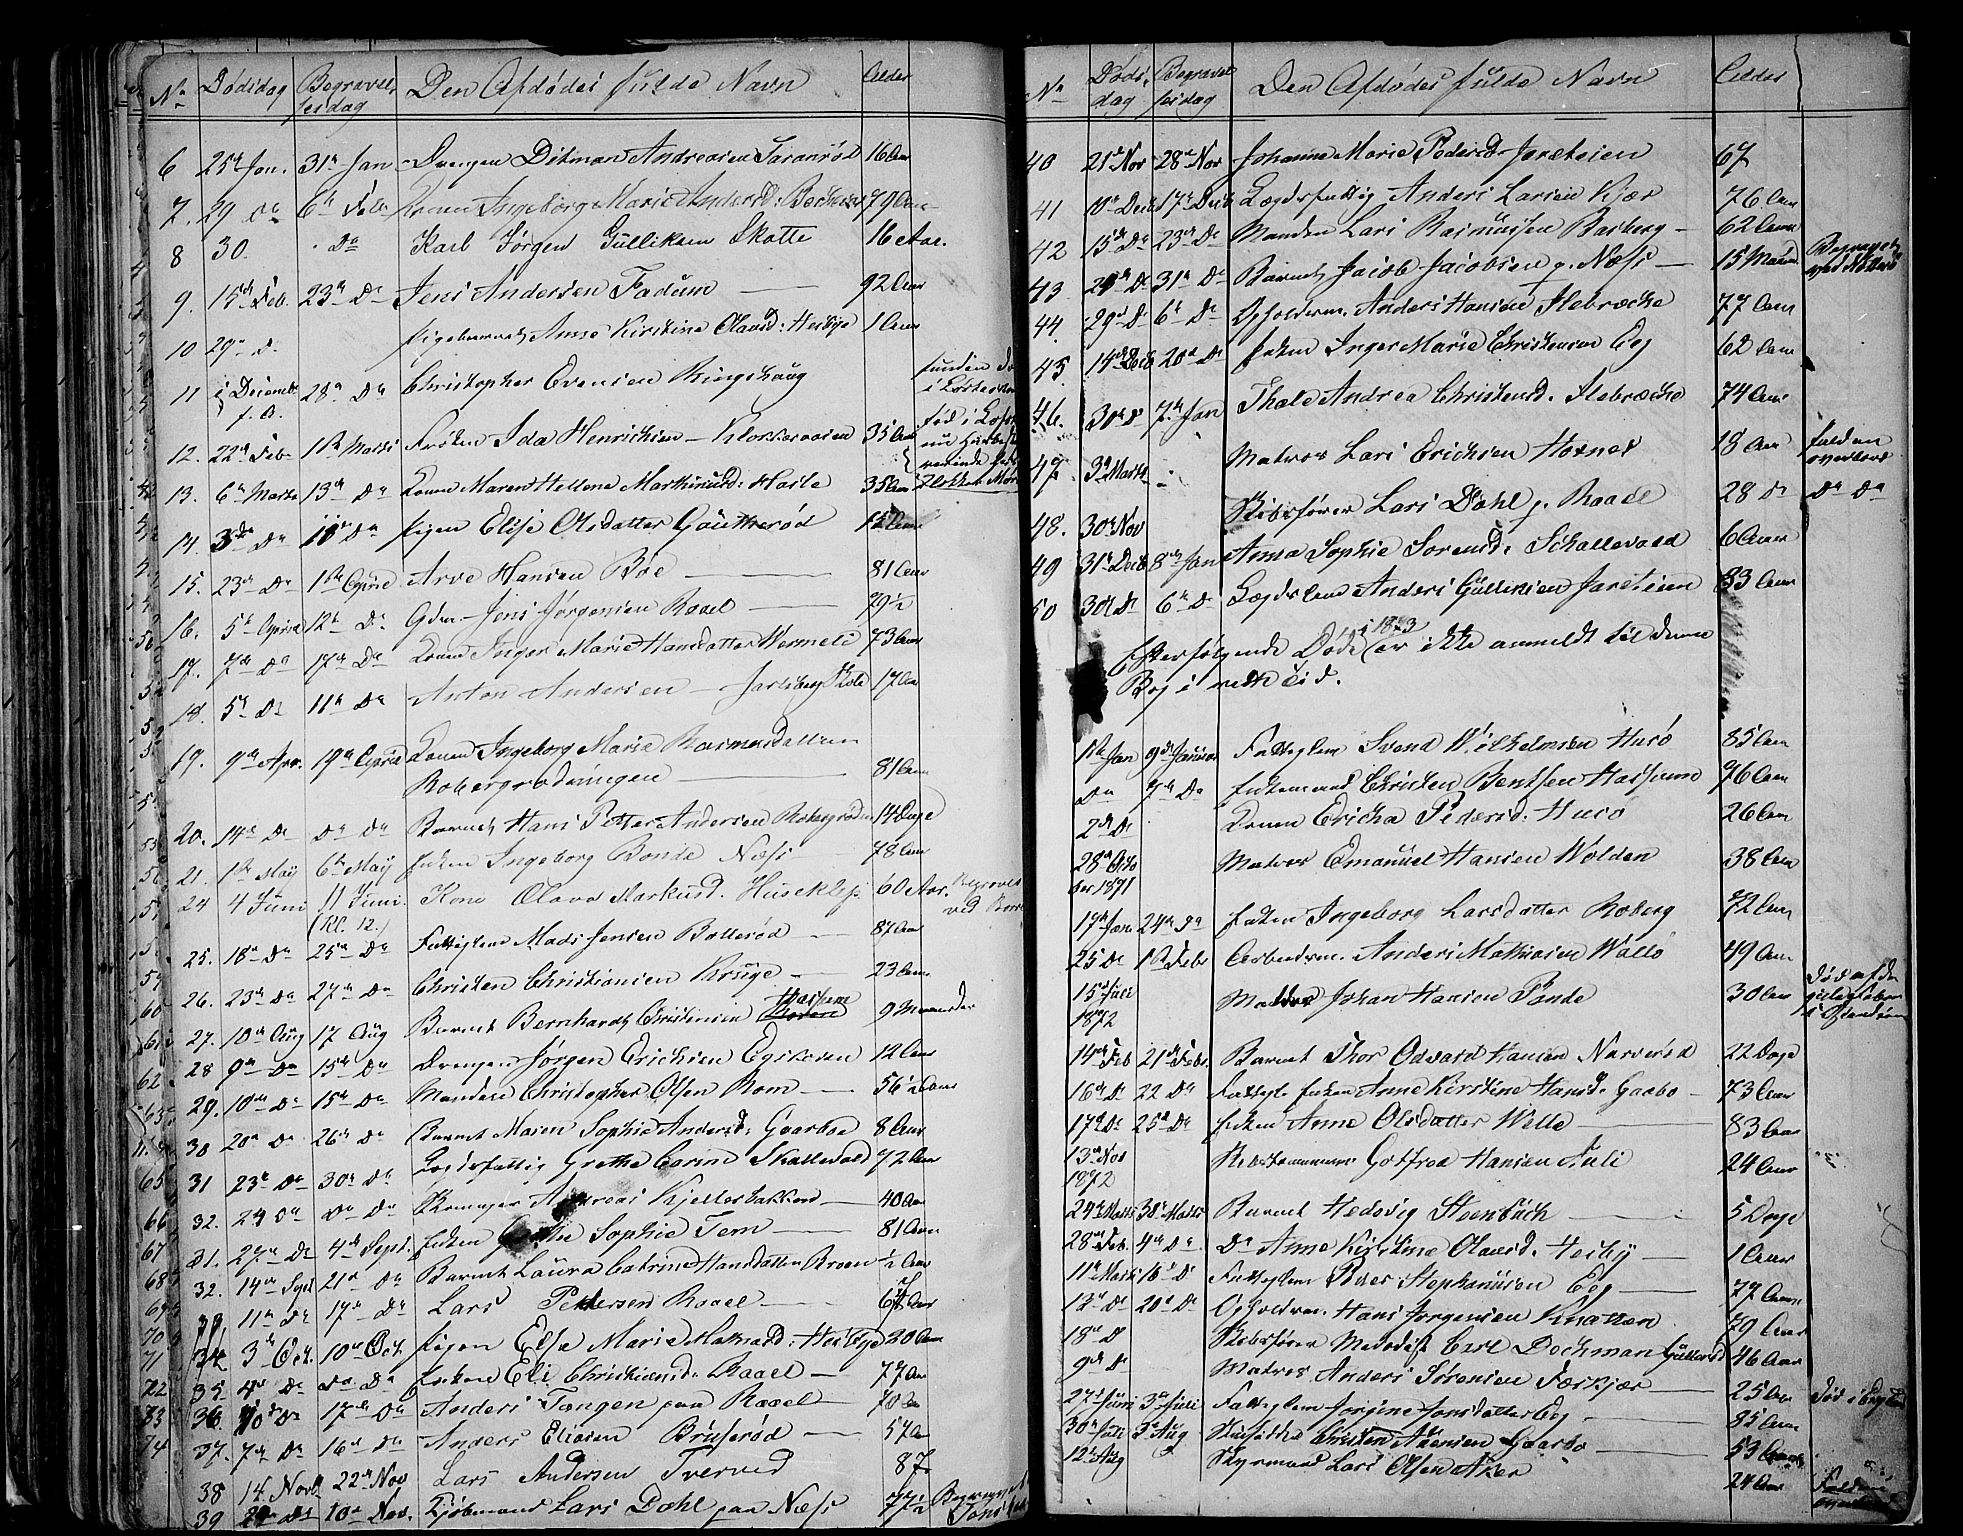 No Dødsdag Begravelsesdag Den Afdødes fulde Navn Alder
6 25de Jan. 31te Jan Drengen Ditman Andreasen 16 Aar
7. 29 Do 6te Feb Konen Ingeborg Marie Andersd: 79 Aar
8 30. Do Karl Jørgen Gulliksen Skotte 16 Aar.
9. 15de Feb. 23de Do Jens Andersen Fadum 92 Aar
10 29de D. Pigebarnet Anne Kirstine Olausd: Hesbye 1 Aar
11 i Decemb. f. A. 28de Do Christopher Evensen Ringshaug funden
12. 22de Feb. 1ste Marts Frøken Ida Henrichsen Klokkeraasen 35 Aar
13. 6te Marts 13de Do Konen Maren Hellene Markusd: Hasle 35 Aar
14. 3de Do 11te Do Pigen Elise Olsdatter 12 Aar
15. 23de Do 1ste April Arve Hansen Bøe 81 Aar
16. 5te April 12te Do Gdm Jens Jørgensen Raael 79½
17. 7de Do 17de Do Konen Inger Marie Hansdatter Wermeli 73 Aar
18. 5te Do 11te Do Anton Andersen Jarlsberg 17 Aar
19. 9de Apr. 19de April Konen Ingeborg Marie Rasmusdatter
Robergrødningen 81 Aar
20. 14de Do Do Do Barnet Hans Petter Andersen 14 Dage
21. 1ste Maij 6te Maij Enken Ingeborg Bonde Næss 78 Aar
24 4 Juni 11 Juni. Kone Olava Markusd. Huseklep 60 Aar. Begravet
(Kl. 12.) ved
25. 18de Do 25de Do Fattiglem Mads Jensen Bollerød 87 Aar
26. 23de Do 27de Do Christen Christiansen Kruge 23 Aar
27. 10de Aug 17 Aug Barnet Bernhardt Christensen 9 Maaneder
28 9de Do 15de Do Drengen Jørgen Erichsen 12 Aar
29. 10de Do 15de Do Manden Christopher Olsen Rom 56½ Aar
30 20de Do 26de Do Barnet Maren Sophie Andersd: Gaarboe 8 Aar
31 23de Do 30te Do Lægdsfattig Grethe Carine Skallevold 72 Aar
32. 24de Do Do Do Andreas Kjellerbakken 40 Aar
31. 27de Do 4de Sept. Enken Sophie Tem 81 Aar
32. 14de Sept 21de Do Barnet Laura Catrine Hansdatter ½ Aar
33 11te Do 17de Do Lars Pettersen Raael 67 Aar
34 3de Oct. 10de Oct. Pigen Else Marie Mathiasd: 30 Aar
35 4de Do Do Do Enken Eli Christiansd: Raael 77 Aar
36. 10de Do 17de Do Anders Tangen paa Raael 70 Aar
37. 7de Do 16de Do Anders Eliasen Bruserød 57 Aar
38 14 Novb 22de Nov Lars Andersen Tverved 87.
39 Do 10de Nov. Kjøbmand Lars Dahl paa Næss 77½
No Dødsdag Begravelsesdag Den Afdødes fulde Navn Alder
40 21de Nov 28de Nov Johanne Marie Pedersd. Jareteien 67
41 10de Decb 17de Decb Lægdsfattig Anders Larsen Kjær 76 Aar
42 15de Do 23de Do Manden Lars Rasmussen Basberg 62 Aar
43 Do 31te Do Barnet Jacob Jacobsen p. Næss 15 Maan Begravet ved Nøtterø
44. 29de D 6te Do Opholdsm. Anders Hansen Slebrække 77 Aar
45 14de Decb 20de Do Enken Inger Marie Christensen Eeg 62 Aar
46. 30te D 7de Jan Thale Andrea Christensd. Slebrække 74 Aar
47 3de Marts Matros Lars Erichsen Hornes 18 Aar falden overbord
48. 30te Nov Skibsfører Lars Dahl p. Raael 28 Do Do Do
49 31te Decb 8de Jan Anna Sophie Sørensd. Schallevold 6 Aar
50 30te Do 6te Do Lægdslem Anders Gulliksen Jareteien 83 Aar
Efterfølgende Døde i 1873 er ikke anmeldt til denne
Bog i rette Tid.
1ste Jan 9de Januar Fattiglem Svend Wilhelmsen Husø 85 Aar
Do 7de Do Enkemand Christen Bentsen Hassum 76 Aar
2de Do Konen Ericka Pedersd. Husø 26 Aar
28de Octo ber 1871 Matros Emanuel Hansen Wolden 38 Aar
17de Jan 24de Do Enken Ingeborg Larsdatter Roberg 72 Aar
25 Do 1ste Feb. Arbeidsm. Anders Mathiasen Walø 49 Aar
15de Juli 1872 Matros Johan Hansen Rande 30 Aar Død af den gulefeber
14de Feb 21de Feb. Barnet Thor Edvard Hansen Narverød 22 Dage
16de Do 22 Do Fattigl. Enken Anne Kirstine Hansd. Gaabo 73 Aar
17de Do 25de Do Enken Anne Olsdatter Welle 83 Aar
13de Nov 1872 Gotfred Hansen 24 Aar
24de Marts 30te Marts Barnet Hedevig Steenbuch 5 Dage
28de Feb. 4de Do Do Anne Kirstine Olausd. Hesby 1 Aar
11te Marts 18de Do Fattiglem Peder Stephansen Eeg 77 Aar
12te Do 20de Do Opholdsm. Hans Jørgensen Knatten 79 Aar
18de D Skibsfører Carl Dochman 46 Aar
9de Do Matros Anders Sørensen 25 Aar Død i
27de Juni 3de Juli Fattiglem Jørgine Jonsdatter Eeg 85 Aar
30te Juli 3de Aug Christen Gaarbo 53 Aar
12te Aug Styrmand Lars Olsen Aker 24 Aar Falden overbord